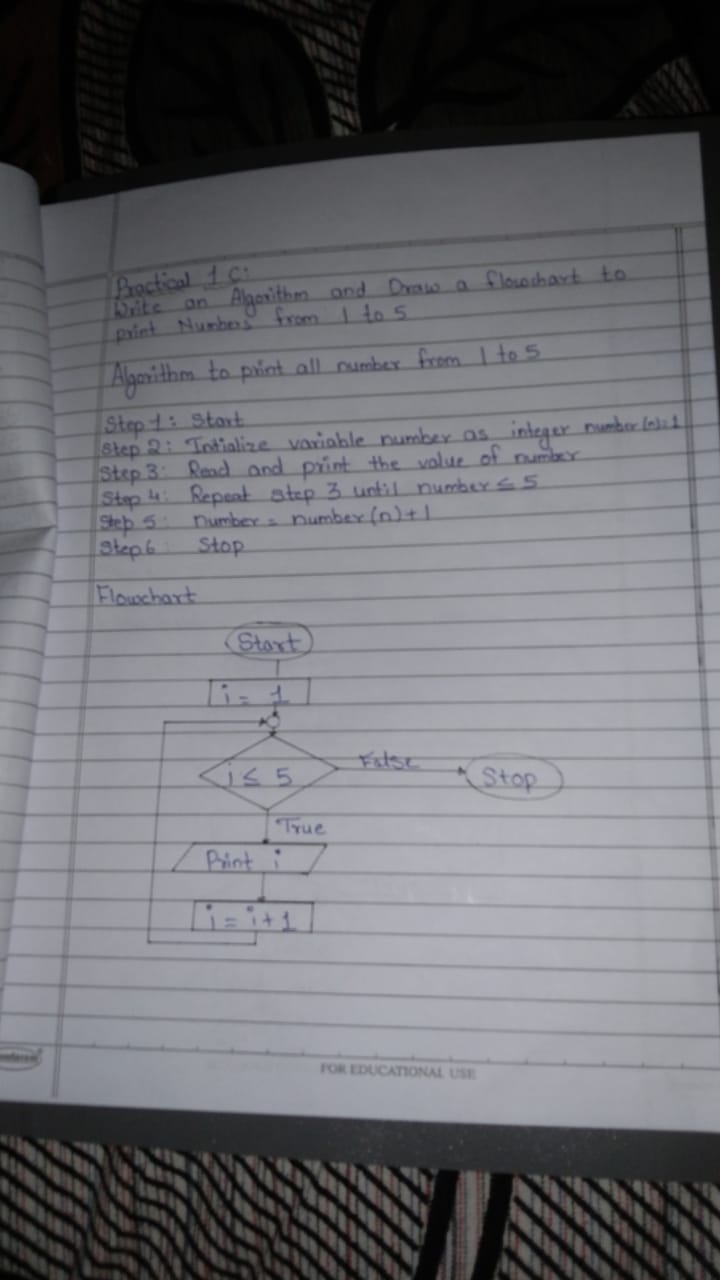 Practical 1 C:
Write an Algorithm and Draw a flowchart to
print Numbers from 1 to 5
Algorithm to print all number from 1 to 5
Step 1: Start
Step 2: Intialize variable number as integer number(n)=1
Step 3: Read and print the value of number
Step 4: Repeat step 3 until number ≤ 5
Step 5: number = number(n)+1
Step 6 Stop
Flowchart
Start
i = 1
i ≤ 5
False
Stop
True
Print i
i = i+1
FOR EDUCATIONAL USE